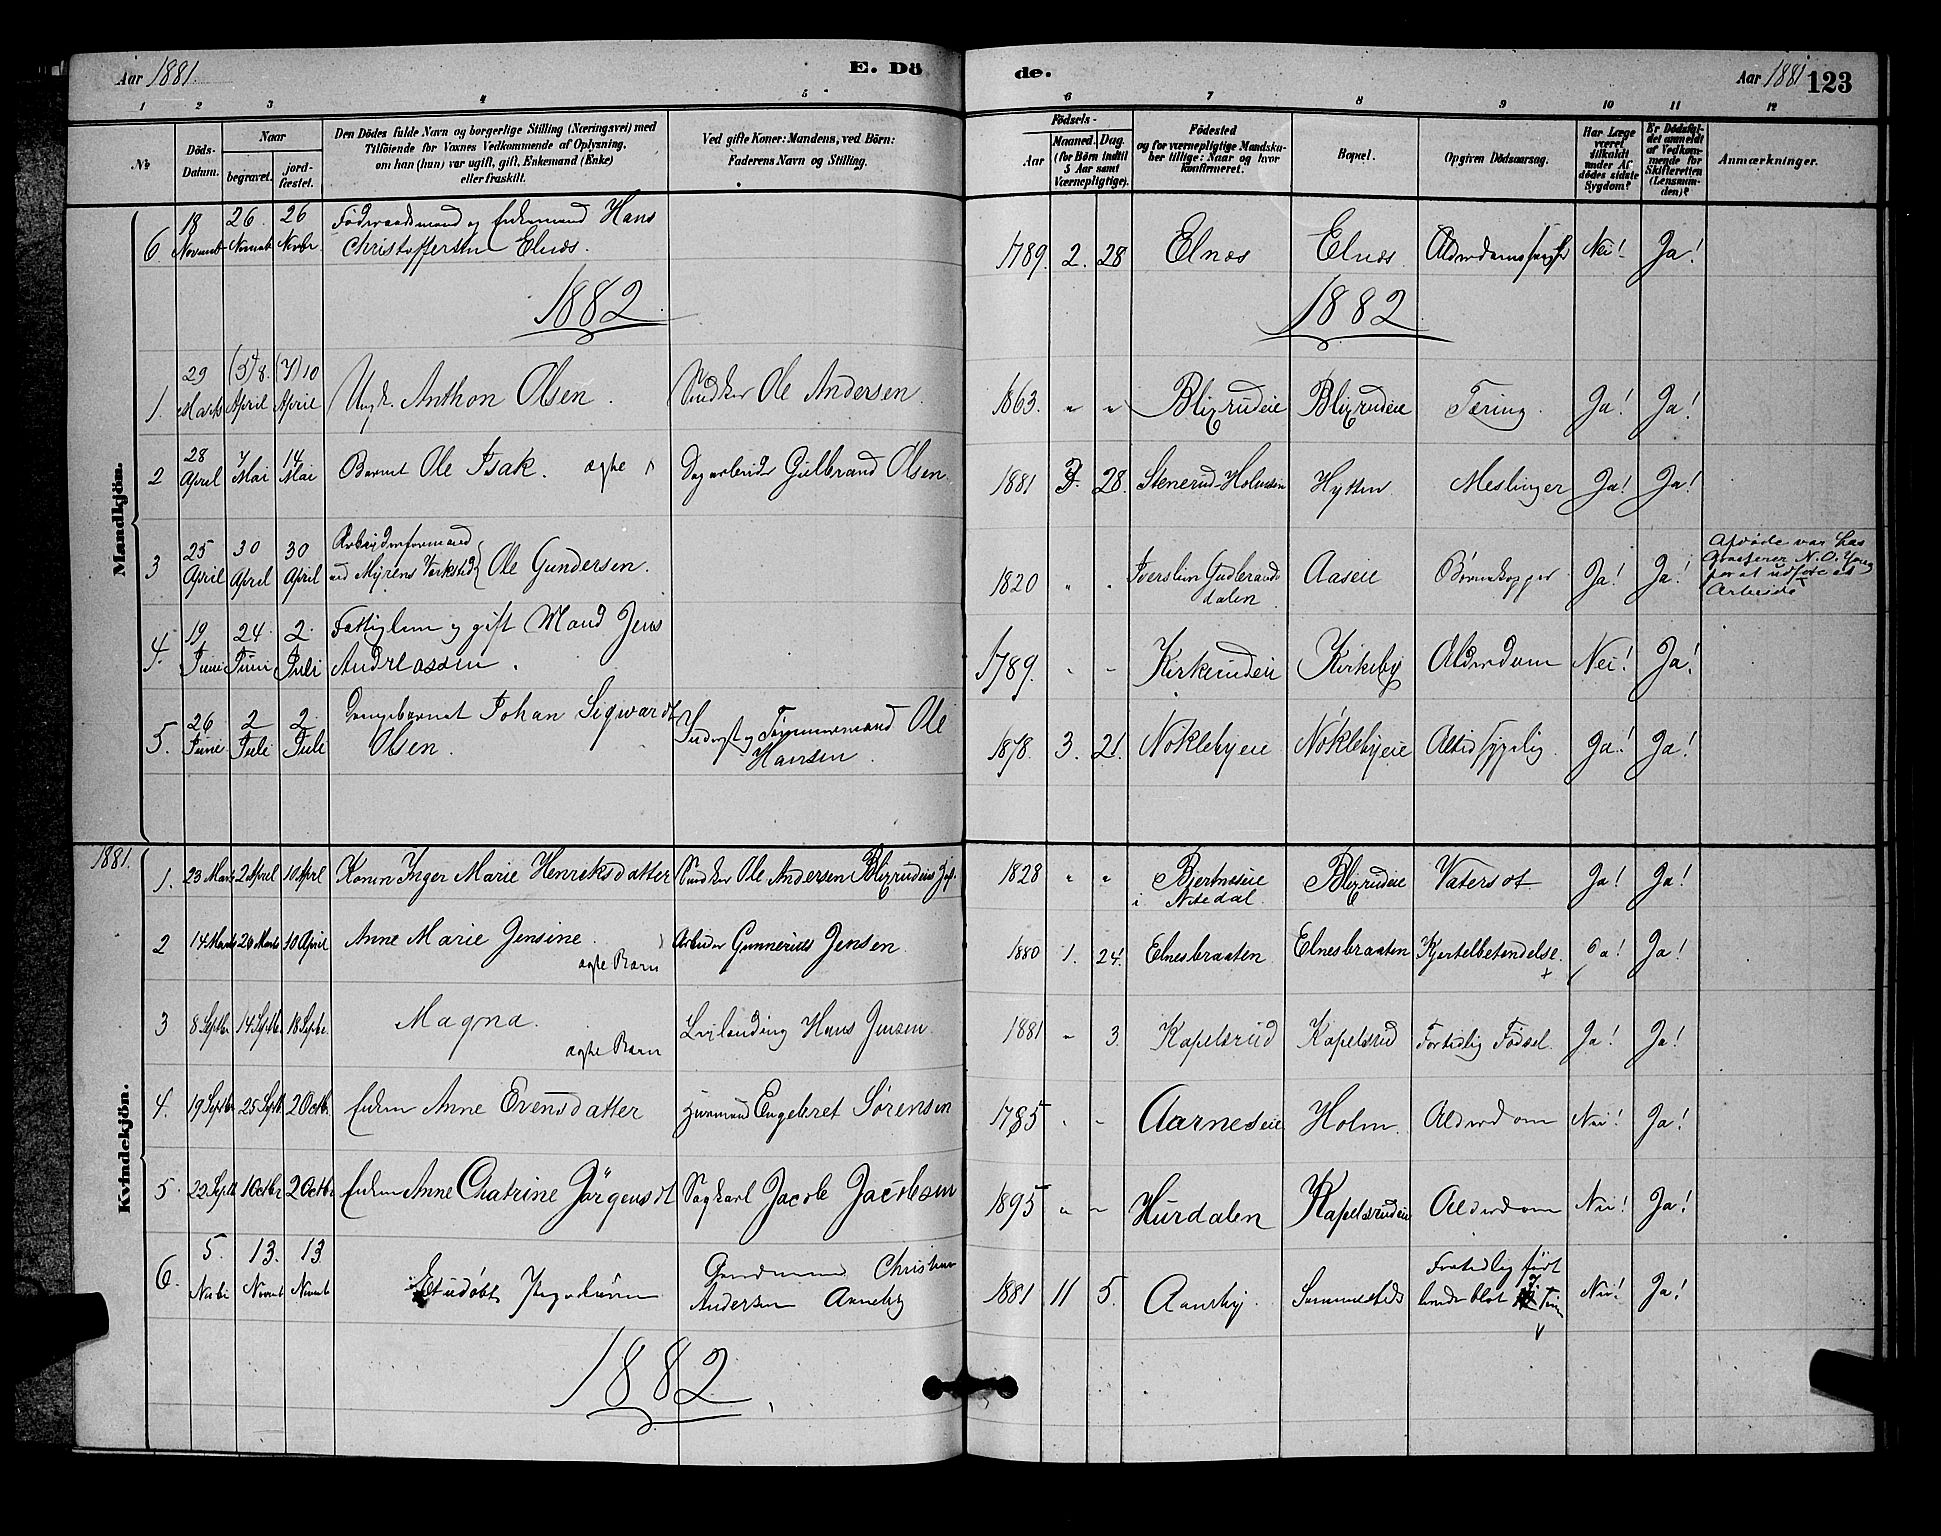 Aar 1881.
E. Dö
de.
Aar 1881
123
1 2 3 4 5 6 7 8 9 10 11 12
No
Döds-
Datum.
Naar
begravet.
jord-
fæstet.
Den Dödes fulde Navn og borgerlige Stilling (Næringsvei) med
Tilföiende for Voxnes Vedkommende af Oplysning,
om han (hun) var ugift, gift, Enkemand (Enke)
eller fraskilt.
Ved gifte Koner: Mandens, ved Börn:
Faderens Navn og Stilling.
Födsels-
Aar
Maaned. Dag.
(for Börn indtil
5 Aar samt
Værnepligtige).
Födested
og for værnepligtige Mandska-
ber tillige: Naar og hvor
konfirmeret.
Bopæl.
Opgiven Dödsaarsag.
Har Læge
været
tilkaldt
under Af-
dödes sidste
Sygdom?
Er Dödsfal-
det anmeldt
af Vedkom-
mende for
Skifteretten
(Lensman-
den)?
Anmærkninger.
Mandkjön.
6 18 Novemb 26. Novemb 26 Novbr Föderaadsmand og Enkemand Hans
Christoffersen Elnæs.
1789. 2. 28 Elnæs Elnæs Nei! Ja!
1882
1882
1. 29 Marts (5) 8. April (7) 10 April Ungk. Anthon Olsen. Snedker Ole Andersen.
1863. " " Blixrudeie Blixrudeie Tæring. Ja! Ja!
2 28 April 7 Mai 14 Mai Barnet Ole Isak. ægte Dagarbeider Gulbrand Olsen
1881 3. 28. Stenerud-Holmsen Hytten Meslinger Ja! Ja!
3 25 April 30 April 30 April Arbeiderformand
ved Myrens Værksted Ole Gundersen.
1820 " " Gudbrands
dalen Aaseie Börnekopper Ja! Ja!
Afdøde var hos
N. O. Young
for at udføre et
Arbeide
4. 19 Juni 24 Juni 2. Juli Fattiglem og gift Mand Jens
Andreassen.
1789. - - Kirkerudeie Kirkeby Alderdom Nei! Ja!
5. 26 Juni 2 Juli 2. Juli Drengebarnet Johan Sigwardt
Olsen. Inderst og Tömmermand Ole
Hansen.
1878. 3. 21. Nöklebyeie Nöklebyeie Altid sygelig. Ja! Ja!
1881.
Kvindekjön.
1. 23 Marts 2 April 10 April Konen Inger Marie Henriksdatter Snedker Ole Andersen Blixrudeie
1828 " " Bjertnæseie
i Nitedal. Blixrudeie Vatersot Ja! Ja!
2 14 Marts 26 Marts 10 April Anne Marie Jensine.
ægte Barn Arbeider Gunnerius Jensen.
1880 1. 24. Elnesbraaten Elnesbraaten Kjertelbetendelse. Ja! Ja!
3 8 Septbr. 14 Septbr. 18 Septbr. Magna.
ægte Barn Hans Jensen.
1881 - 3. Kapelsrud Kapelsrud Fortidlig Födsel. Ja! Ja!
4. 19 Septbr 25 Septb 2 Octbr. Enken Anne Evensdatter Husmand Engebret Sørensen
1785 . - Aarneseie Holm. Alderdom Nei! Ja!
5 22 Septb 1 Octbr 2 Octbr Enken Anne Chatrine Jörgensdt Sagkarl Jacob Jacobsen
1895 " - Hurdalen Kapelsrudeie Alderdom Nei! Ja!
6. 5. 13. Novmb 13 Novmb Et udöbt Pigebarn Christian
Andersen Aaneby
1881 11 5. Aaneby. Fortidlig födt
Nei! Ja!
1882